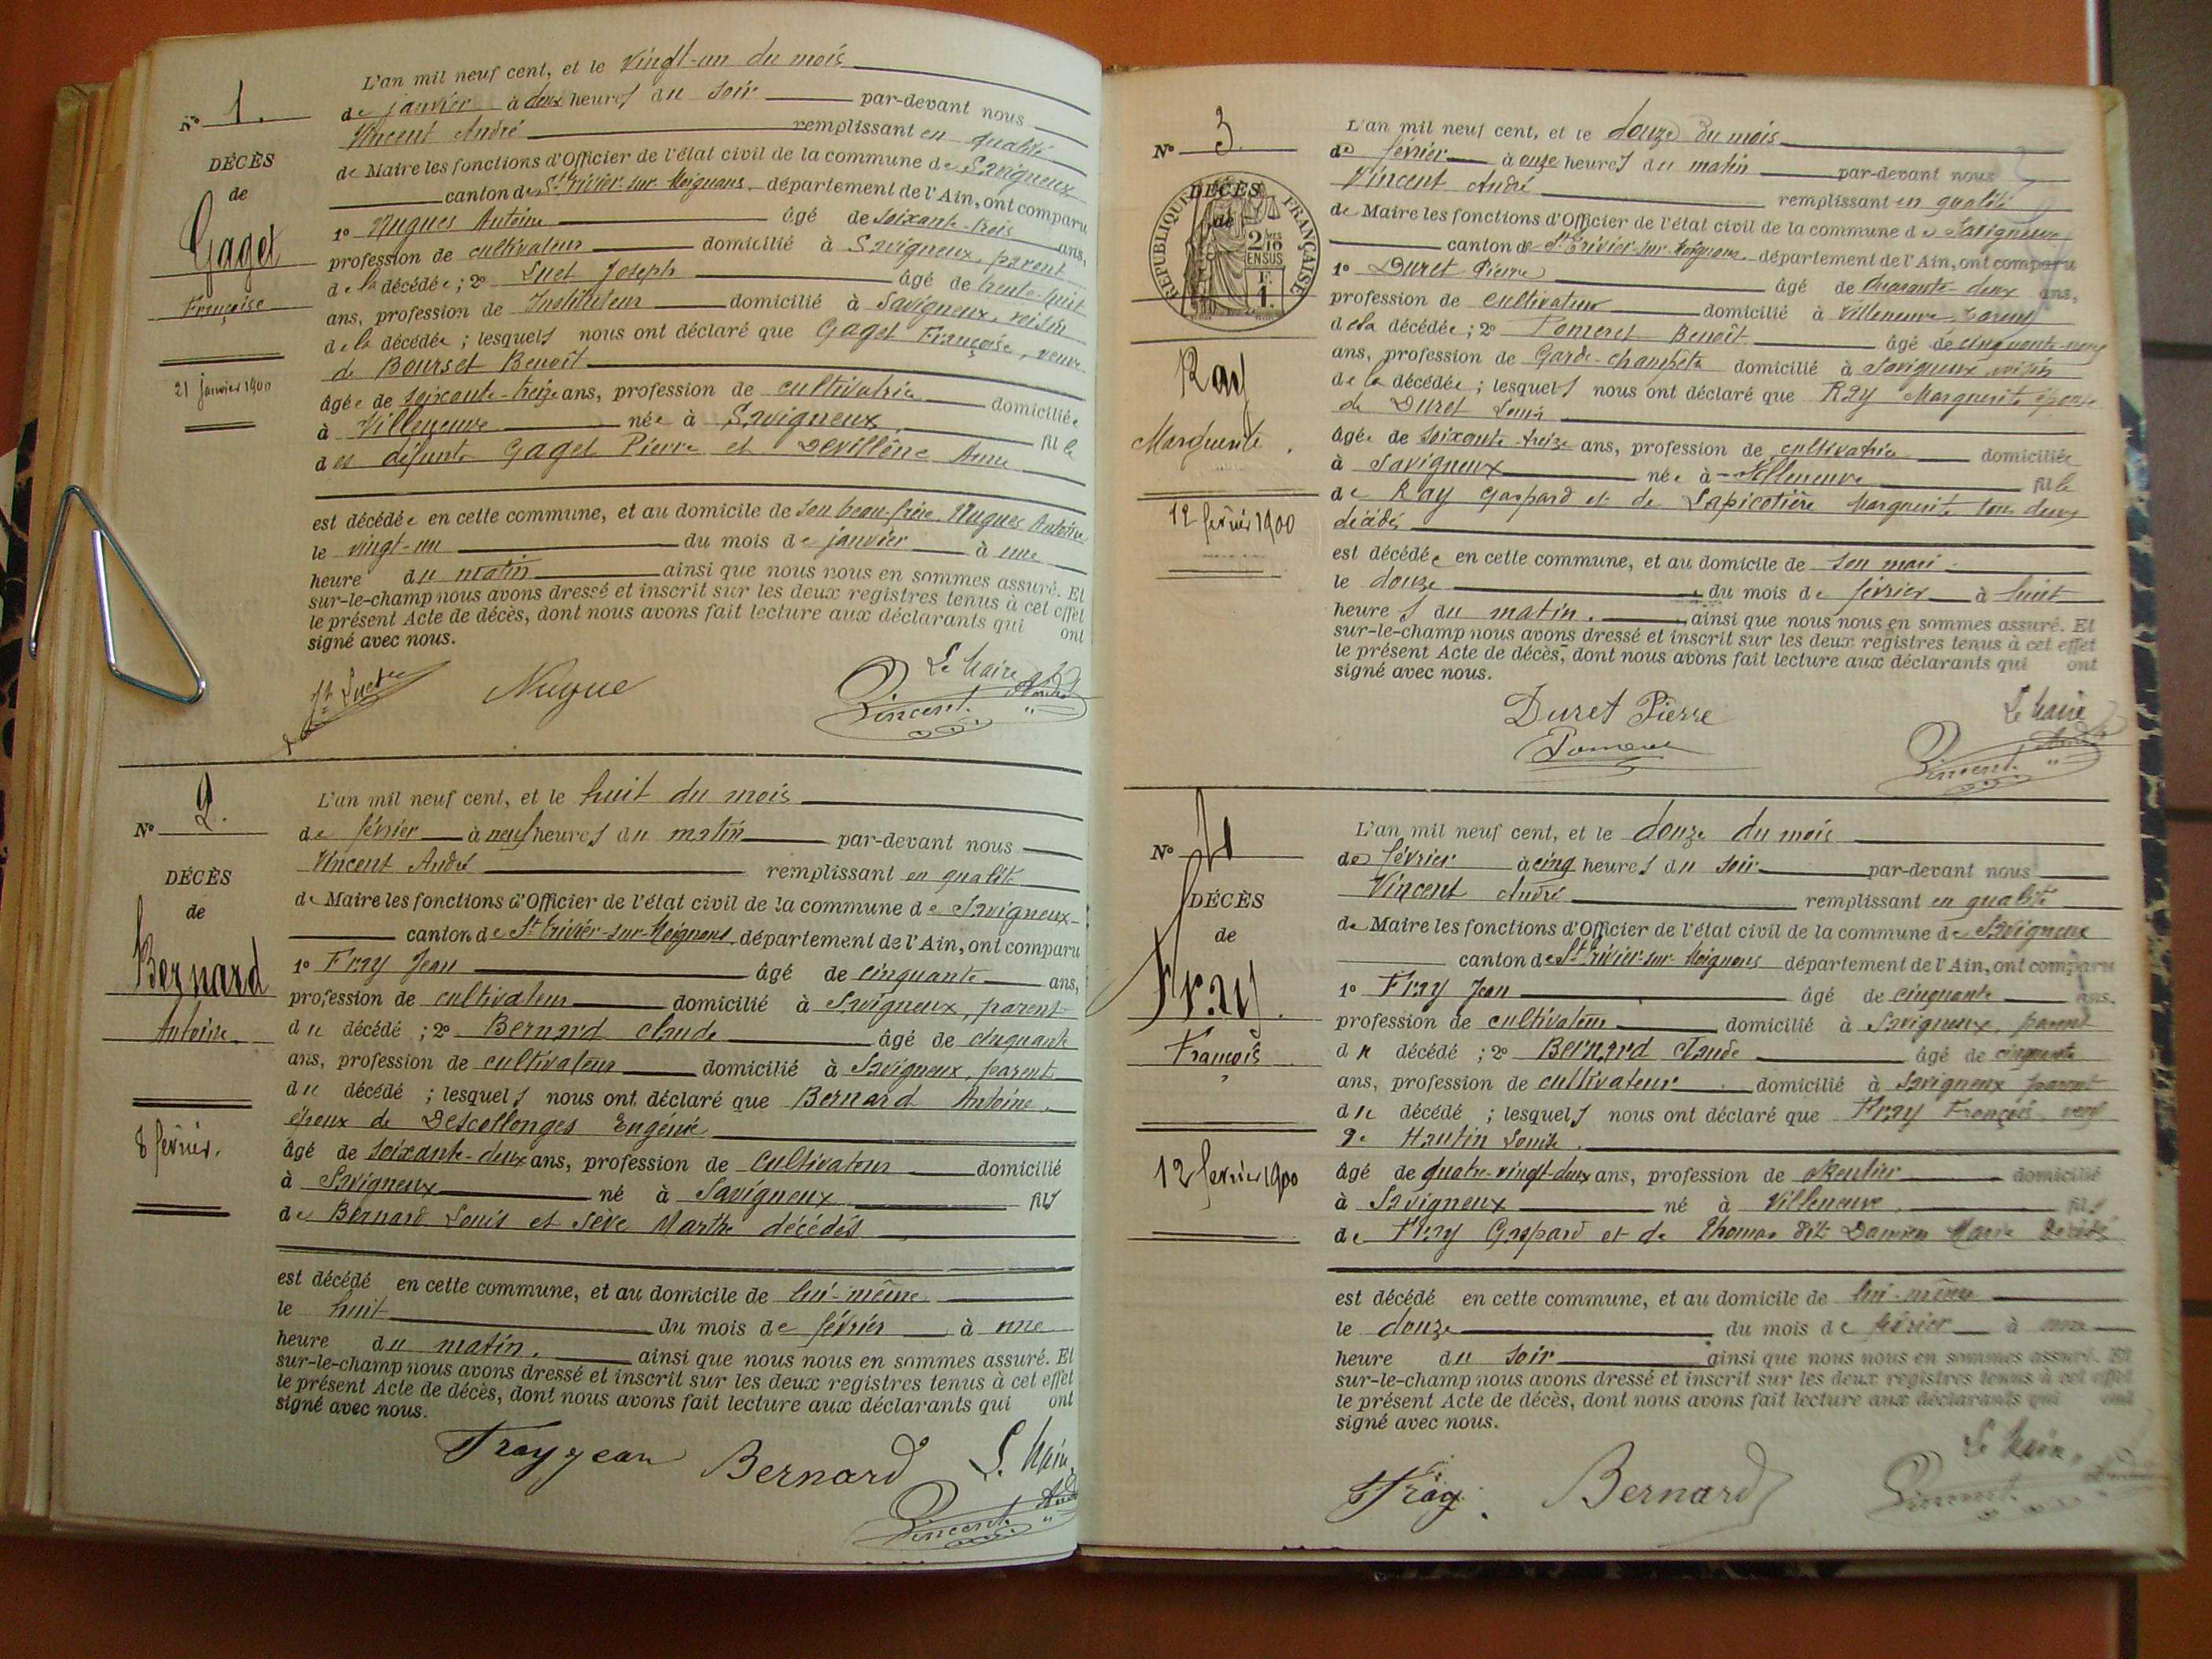 L'an mil neuf cent, et le vingt-un du mois
de janvier à deux heures du soir par-devant nous
Vincent André remplissant en qualité
de Maire les fonctions d'Officier de l'état civil de la commune de Savigneux
canton de St Trivier-sur-Moignans, département de l'Ain, ont comparu
1° Nugues Antoine âgé de soixante-trois ans,
profession de cultivateur domicilié à Savigneux, parent
de la décédée ; 2° Luet Joseph âgé de trente-huit
ans, profession de Instituteur domicilié à Savigneux, voisin
de la décédée ; lesquels nous ont déclaré que Gaget Françoise, veuve
de Bourset Benoît
âgée de soixante-treize ans, profession de cultivatrice domiciliée
à Villeneuve née à Savigneux fille
des défunts Gaget Pierre et Devillène Anne
est décédée en cette commune, et au domicile de son beau-frère, Nugues Antoine
le vingt-un du mois de janvier à une
heure du matin ainsi que nous nous en sommes assuré. Et
sur-le-champ nous avons dressé et inscrit sur les deux registres tenus à cet effet
le présent Acte de décès, dont nous avons fait lecture aux déclarants qui ont
signé avec nous.
Nugue
Le Maire
Vincent André
N° 1.
DÉCÈS
de
Gaget
Françoise
21 janvier 1900
N° 2.
DÉCÈS
de
Bernard
Antoine
8 février.
L'an mil neuf cent, et le huit du mois
de février à neuf heures du matin par-devant nous
Vincent André remplissant en qualité
de Maire les fonctions d'Officier de l'état civil de la commune de Savigneux
canton de St Trivier-sur-Moignans, département de l'Ain, ont comparu
1° Fray Jean âgé de cinquante ans,
profession de cultivateur domicilié à Savigneux, parent
du décédé ; 2° Bernard Claude âgé de cinquante
ans, profession de cultivateur domicilié à Savigneux, parent
du décédé ; lesquels nous ont déclaré que Bernard Antoine,
époux de Descollonges Eugénie
âgé de soixante-deux ans, profession de cultivateur domicilié
à Savigneux né à Savigneux fils
de Bernard Louis et Sève Marthe décédés
est décédé en cette commune, et au domicile de lui-même
le huit du mois de février à une
heure du matin. ainsi que nous nous en sommes assuré. Et
sur-le-champ nous avons dressé et inscrit sur les deux registres tenus à cet effet
le présent Acte de décès, dont nous avons fait lecture aux déclarants qui ont
signé avec nous.
Fray jean Bernard Le Maire
Vincent André
N° 3
DÉCÈS
de
RÉPUBLIQUE FRANÇAISE
2 10mes
EN SUS
F.
1.
Ray
Marguerite.
12 février 1900
L'an mil neuf cent, et le douze du mois
de février à onze heures du matin par-devant nous
Vincent André remplissant en qualité
de Maire les fonctions d'Officier de l'état civil de la commune de Savigneux
canton de St Trivier-sur-Moignans, département de l'Ain, ont comparu
1° Duret Pierre âgé de quarante-deux ans,
profession de cultivateur domicilié à Villeneuve, parent
de la décédée ; 2° Pomeret Benoît âgé de cinquante-neuf
ans, profession de Garde-champêtre domicilié à Savigneux voisin
de la décédée ; lesquels nous ont déclaré que Ray Marguerite épouse
de Duret Louis
âgée de soixante-treize ans, profession de cultivatrice domiciliée
à Savigneux née à Villeneuve fille
de Ray Gaspard et de Lapicotière Marguerite tous deux
décédés
est décédée en cette commune, et au domicile de son mari
le douze du mois de février à huit
heures du matin. ainsi que nous nous en sommes assuré. Et
sur-le-champ nous avons dressé et inscrit sur les deux registres tenus à cet effet
le présent Acte de décès, dont nous avons fait lecture aux déclarants qui ont
signé avec nous.
Duret Pierre
Le Maire
Vincent André
N° 4
DÉCÈS
de
Fray.
François
12 février 1900
L'an mil neuf cent, et le douze du mois
de février à cinq heures du soir par-devant nous
Vincent André remplissant en qualité
de Maire les fonctions d'Officier de l'état civil de la commune de Savigneux
canton de St Trivier-sur-Moignans département de l'Ain, ont comparu
1° Fray Jean âgé de cinquante ans.
profession de cultivateur domicilié à Savigneux, parent
du décédé ; 2° Bernard Claude âgé de cinquante
ans, profession de cultivateur domicilié à Savigneux parent
du décédé ; lesquels nous ont déclaré que Fray François veuf
de Hautin Louise
âgé de quatre-vingt-deux ans, profession de Rentier domicilié
à Savigneux né à Villeneuve fils
de Fray Gaspard et de Thomas dit Damien Marie décédés
est décédé en cette commune, et au domicile de lui-même
le douze du mois de février à une
heure du soir ainsi que nous nous en sommes assuré. Et
sur-le-champ nous avons dressé et inscrit sur les deux registres tenus à cet effet
le présent Acte de décès, dont nous avons fait lecture aux déclarants qui ont
signé avec nous.
Fray. Bernard Le Maire,
Vincent